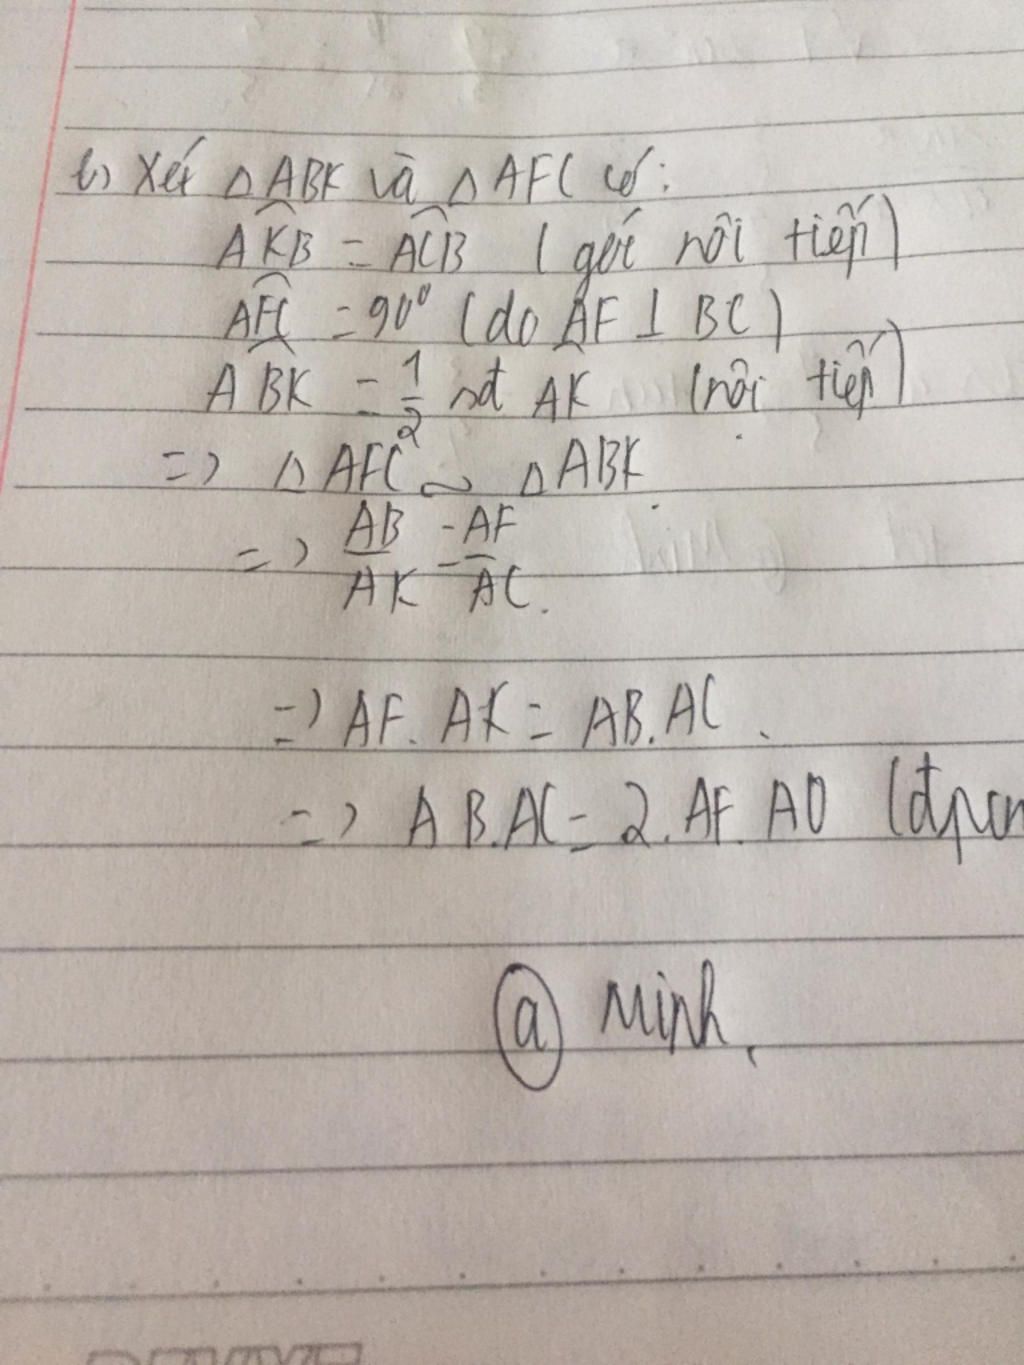 b) Xét △ABK và △AFC có:
AKB = ACB (góc nội tiếp)
AFC = 90° (do AF ⊥ BC)
ABK = 1/2 sđ AK (nội tiếp)
=> △AFC ∽ △ABK.
=> AB/AK = AF/AC.
=> AF. AK = AB.AC.
=> AB.AC = 2.AF.AO (đpcm
@ Minh.